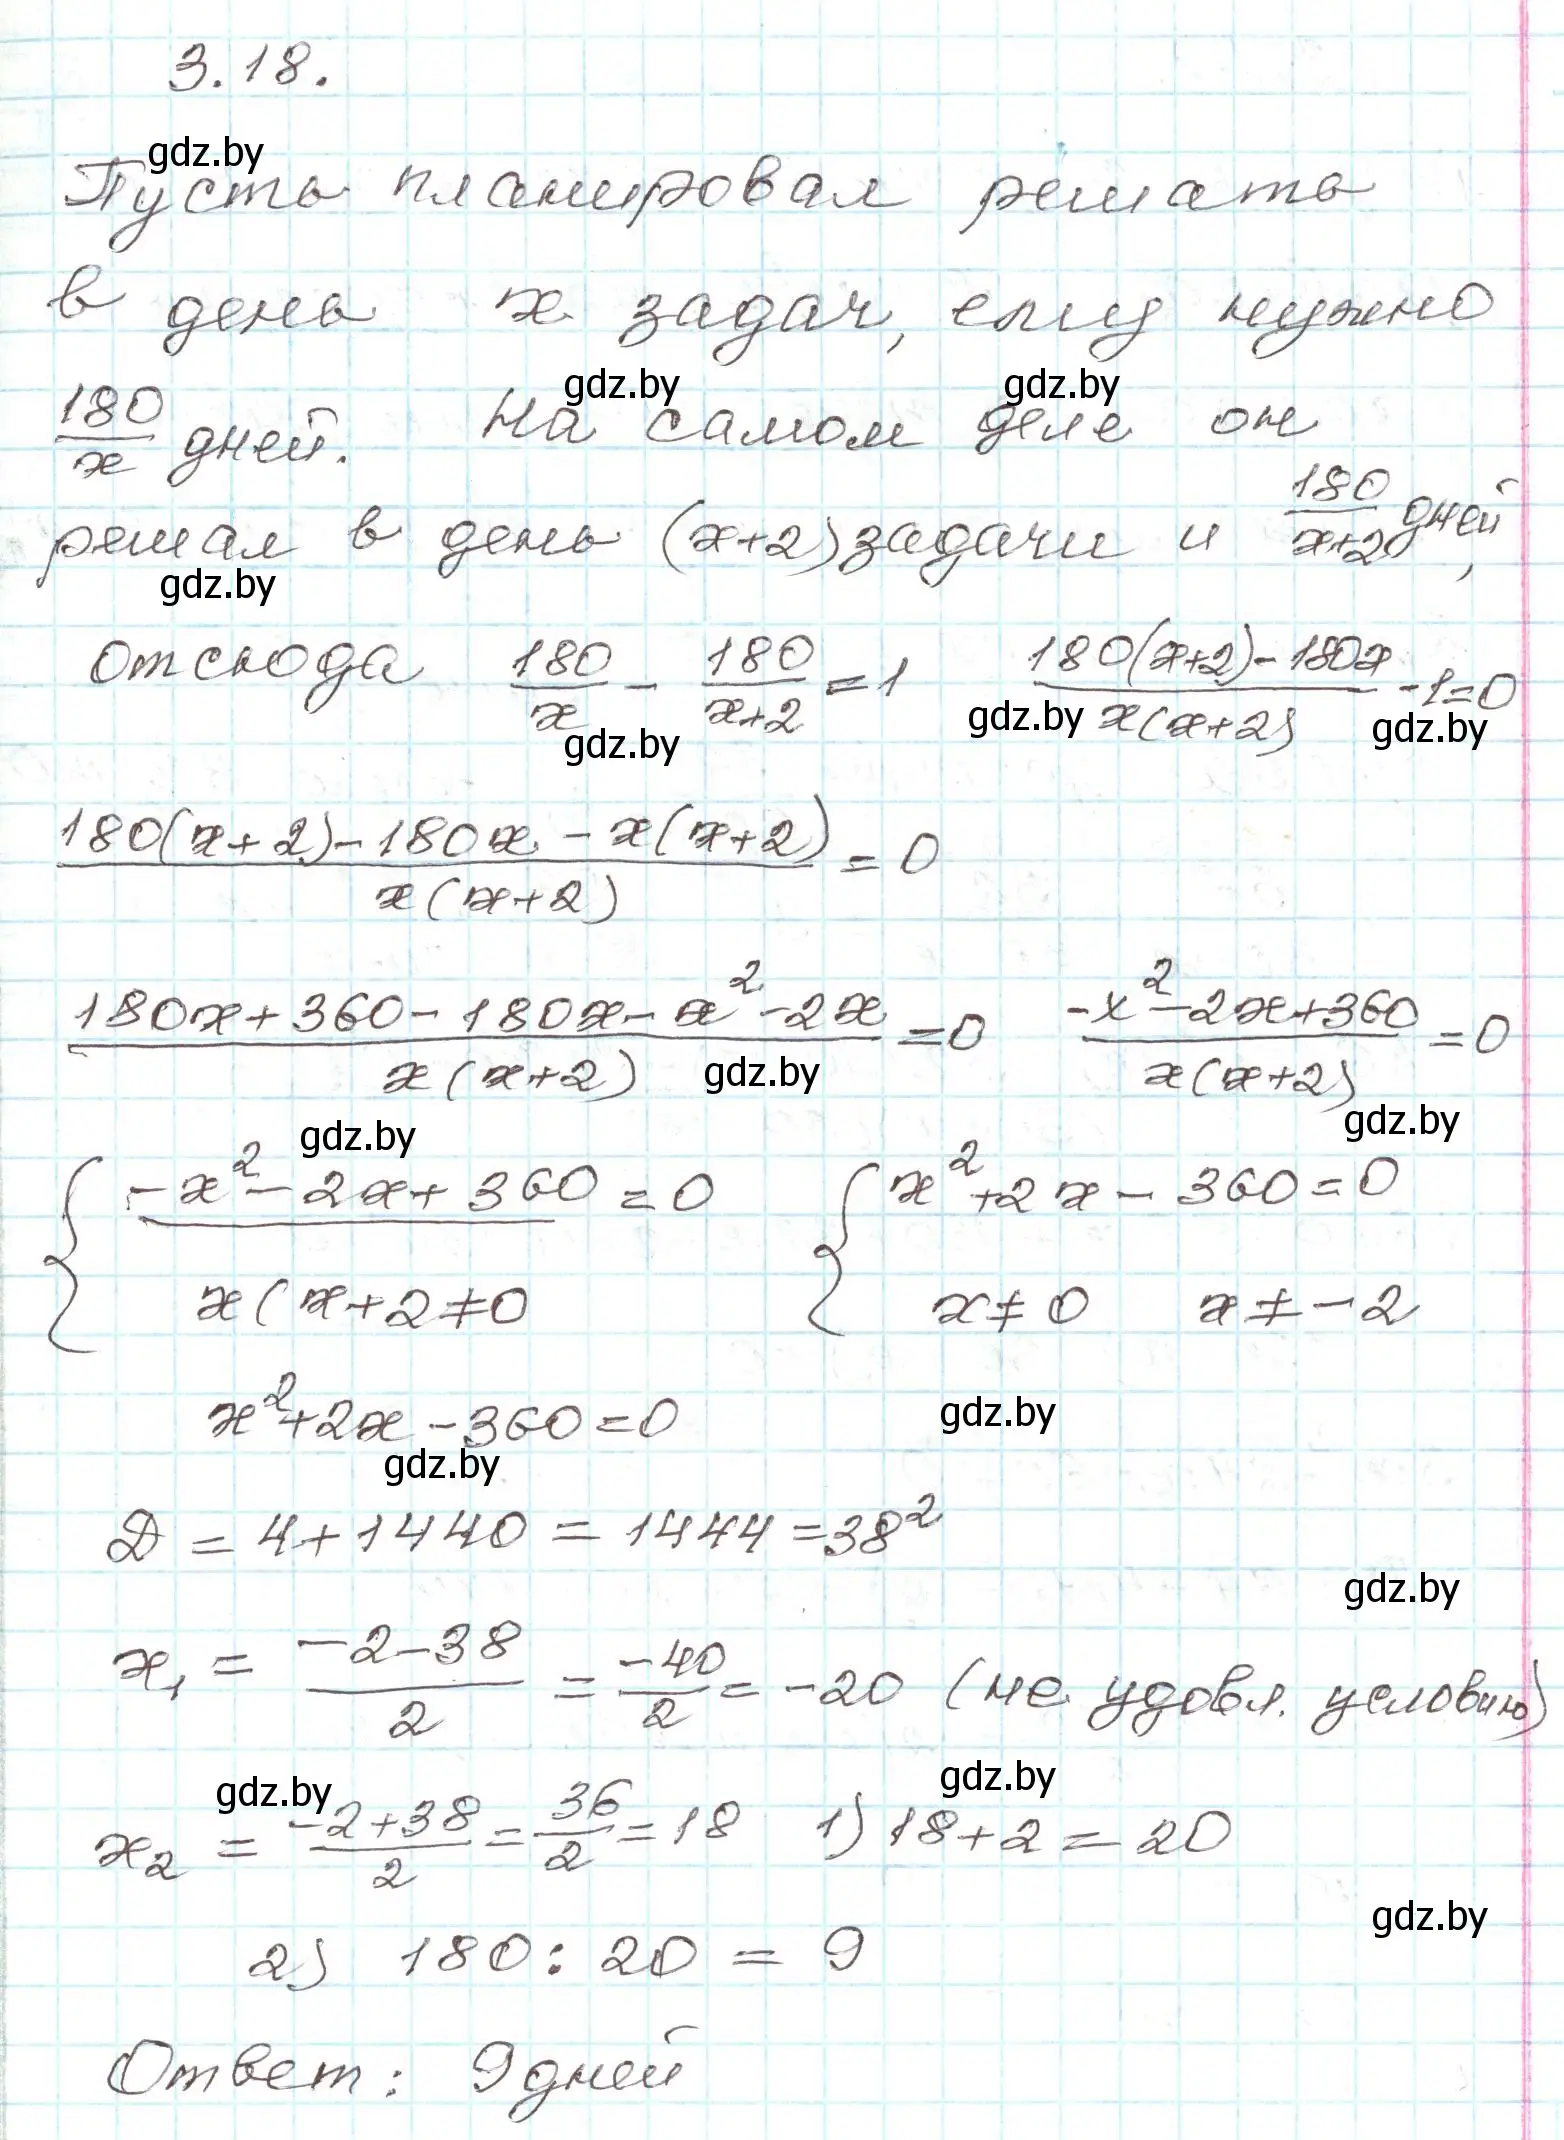 3.18.
gdz.by
Пусть планировал решать
в день x задач, ему нужно
gdz.by gdz.by
180/x дней. На самом деле он
решал в день (x+2) задачи и 180/(x+2) дней,
gdz.by
отсюда 180/x - 180/(x+2) = 1 (180(x+2)-180x)/(x(x+2)) - 1 = 0
gdz.by gdz.by gdz.by
(180(x+2)-180x-x(x+2))/(x(x+2)) = 0
(180x+360-180x-x²-2x)/(x(x+2)) = 0 (-x²-2x+360)/(x(x+2)) = 0
gdz.by gdz.by gdz.by
{ -x²-2x+360 = 0 { x²+2x-360=0
x(x+2≠0 x≠0 x≠-2
x²+2x-360=0 gdz.by
gdz.by
D = 4+1440 = 1444 = 38²
gdz.by
x₁ = (-2-38)/2 = -40/2 = -20 (не удовл. условию)
gdz.by gdz.by
x₂ = (-2+38)/2 = 36/2 = 18 1) 18+2 = 20
gdz.by
2) 180 : 20 = 9
Ответ: 9 дней